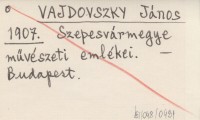 VAJDOVSZKY János
1907. Szepesvármegye
művészeti emlékei. —
Budapest.